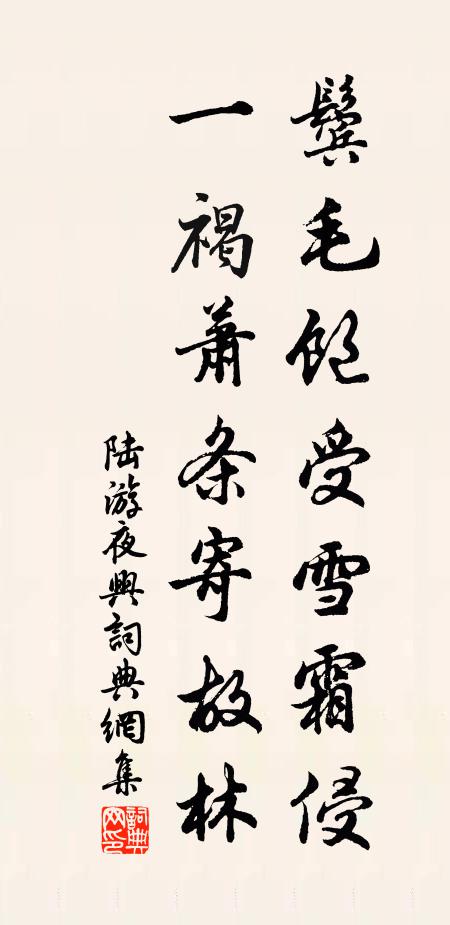 鬓毛饱受雪霜侵
一褐萧条寄故林
陆游夜興詞典網集
詞典网印